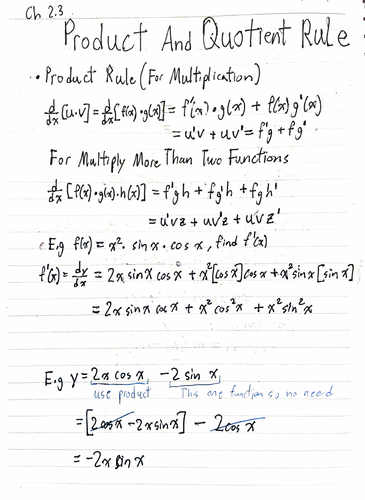 Ch 2.3
Product And Quotient Rule
• Product Rule (For Multiplication)
d/dx [u·v] = d/dx [f(x)·g(x)] = f'(x)·g(x) + f(x)g'(x)
= u'v + uv' = f'g + fg'
For Multiply More Than Two Functions
d/dx [f(x)·g(x)·h(x)] = f'gh + fg'h + fgh'
= u'vz + uv'z + uvz'
E.g f(x) = x²· sin x · cos x, find f'(x)
f'(x) = dy/dx = 2x sin x cos x + x²[cos x] cos x + x² sin x [sin x]
= 2x sin x cos x + x² cos² x + x² sin² x
E.g y = 2x cos x - 2 sin x
use product This one function so no need
= [2cos x - 2x sin x] - 2cos x
= -2x sin x